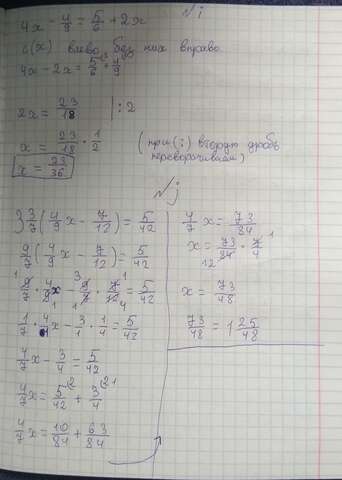 N i
4x - 4/9 = 5/6 + 2x
с(x) влево, без них вправо
4x - 2x = 5/6 + 4/9
2x = 23/18 | : 2
x = 23/18 · 1/2 (при (:) вторую дробь переворачиваем)
x = 23/36
N j
3 3/7 (4/9 x - 7/12) = 5/42
9/7 (4/9 x - 7/12) = 5/42
9/7 · 4/9 x - 9/7 · 7/12 = 5/42
1/7 · 4/1 x - 3/1 · 1/4 = 5/42
4/7 x - 3/4 = 5/42
4/7 x = 5/42 + 3/4
4/7 x = 10/84 + 63/84
4/7 x = 73/84
x = 73/84 · 7/4
x = 73/48
73/48 = 1 25/48